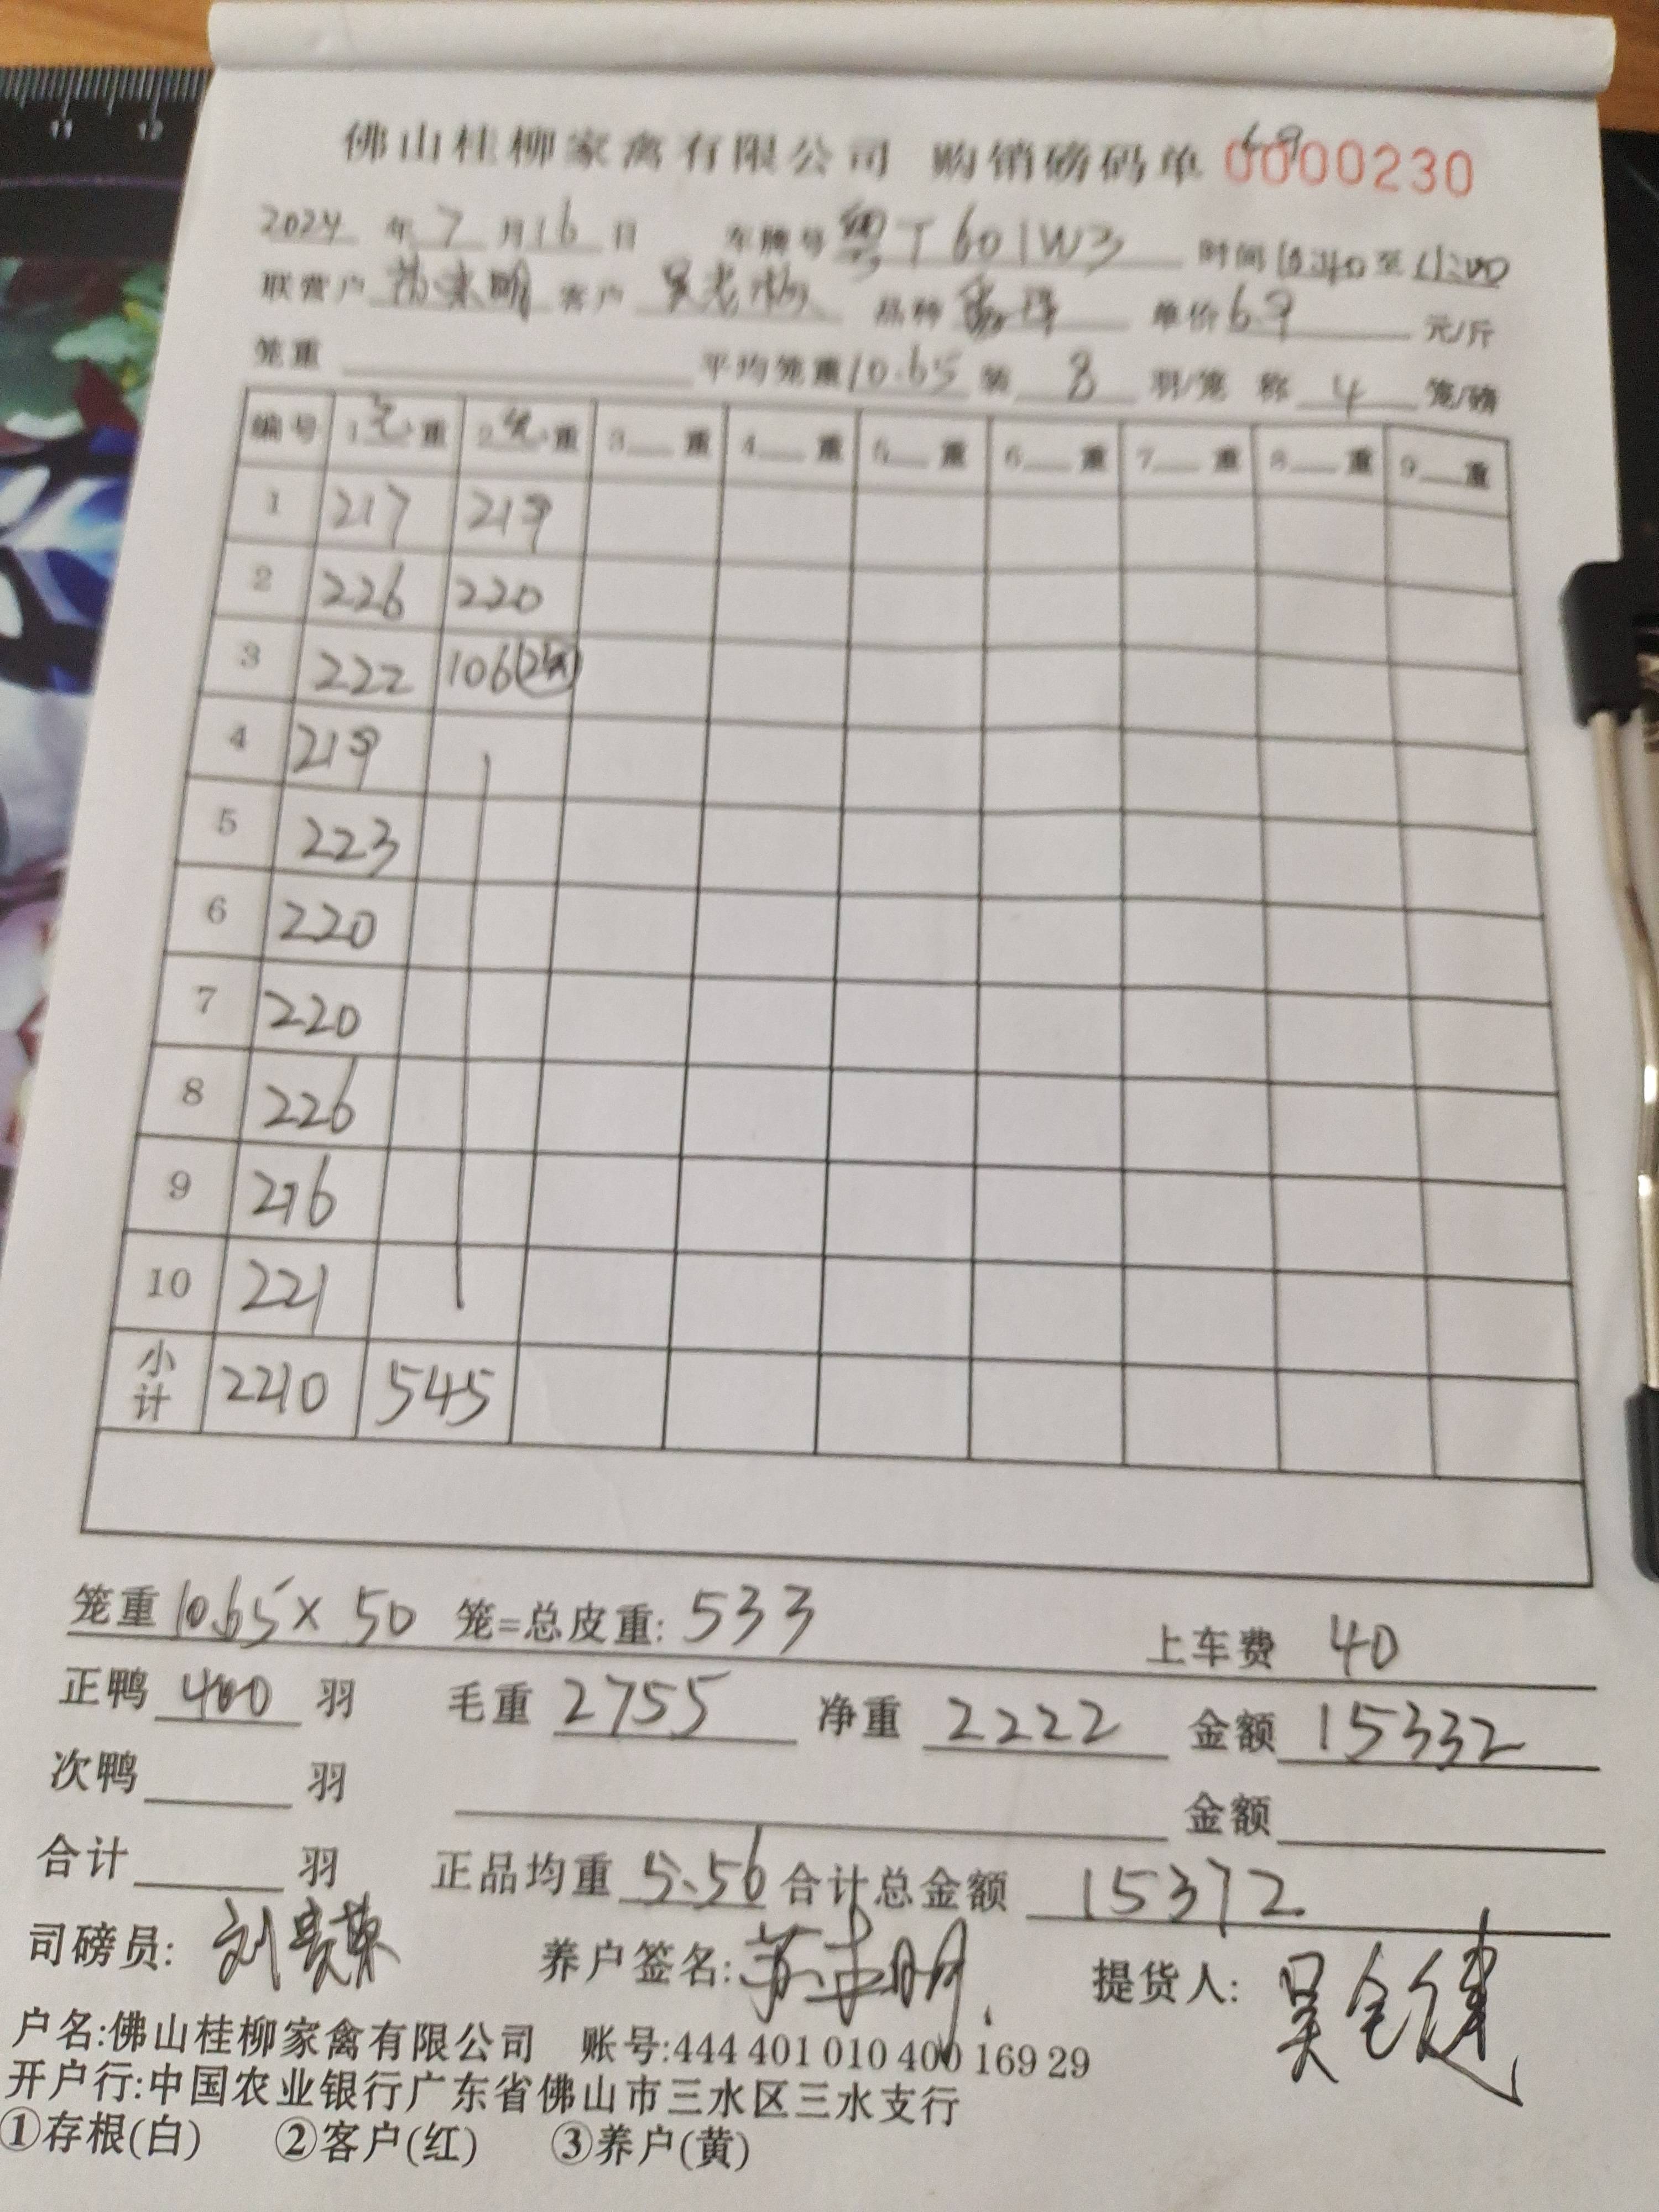 佛山桂柳家禽有限公司 购销磅码单 0000230
6.9
2024 年 7 月 16 日 车牌号 粤T601W3 时间 10:40 至 11:00
联营户 苏来明 客户 单价 6.9 元/斤
笼重 平均笼重 10.65 装 8 羽/笼 称 4 笼/磅
编号 1 毛 重 2 毛 重 3 重 4 重 5 重 6 重 7 重 8 重 9 重
1 217 219
2 226 220
3 222 106(2笼)
4 219
5 223
6 220
7 220
8 226
9 216
10 221
小计 2210 545
笼重 10.65 × 50 笼=总皮重: 533 上车费 40
正鸭 400 羽 毛重 2755 净重 2222 金额 15332
次鸭 羽 金额
合计 羽 正品均重 5.56 合计总金额 15372
司磅员: 养户签名: 苏来明 提货人:
户名:佛山桂柳家禽有限公司 账号:444 401 010 400 169 29
开户行:中国农业银行广东省佛山市三水区三水支行
①存根(白) ②客户(红) ③养户(黄)
11 12